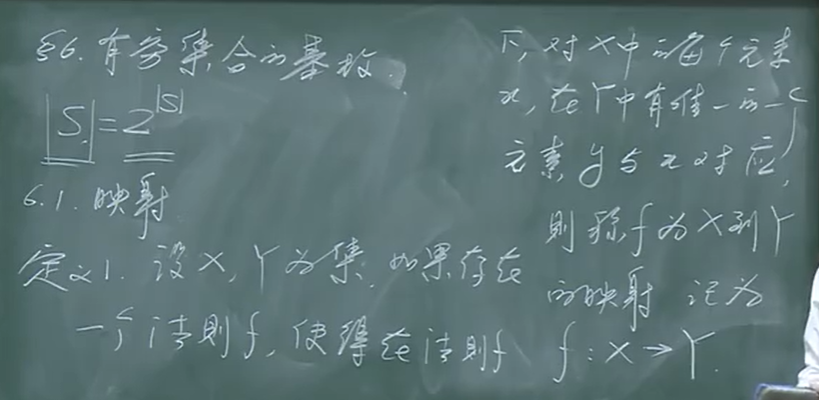 §6. 有穷集合的基数.
|S|=2^|S|
6.1. 映射
定义1. 设X,Y为集,如果存在
一个法则f,使得在法则f
下,对X中的每个元素
x,在Y中有唯一的一个
元素y与x对应,
则称f为X到Y
的映射 记为
f:X→Y.